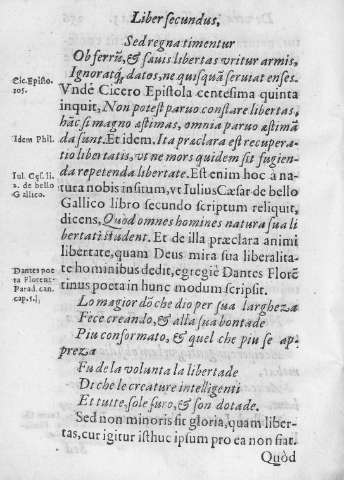 Liber secundus.
Sed regna timentur
Ob ferrũ, & sæuis libertas vritur armis,
Ignoratq́, datos, ne quisquã seruiat enses.
Vndè Cicero Epistola centesima quinta
inquit, Non potest paruo constare libertas,
hãc si magno æstimas, omnia paruo æstimã
da sunt. Et idem. Ita præclara est recupera-
tio libertatis, vt ne mors quidem sit fugien-
da repetenda libertate. Est enim hoc à na
tura nobis insitum, vt Iulius Cæsar de bello
Gallico libro secundo scriptum reliquit,
dicens, Quòd omnes homines natura sua li
bertati student. Et de illa præclara animi
libertate, quam Deus mira sua liberalita-
te hominibus dedit, egregiè Dantes Florẽ
tinus poeta in hunc modum scripsit.
Lo magior dõ che dio per sua largheza
Fece creando, & alla sua bontade
Piu conformato, & quel che piu se ap
preza
Fu de la volunta la libertade
Di chè le creature intelligenti
Et tutte, sole furo, & son dotade.
Sed non minoris sit gloria, quam liber-
tas, cur igitur isthuc ipsum pro ea non fiat.
Quòd
Cic. Episto.
105.
Idem Phil.
Iul. Cęs. li.
2. de bello
Gallico.
Dantes poe
ta Florent.
Parad. can.
cap. 5.